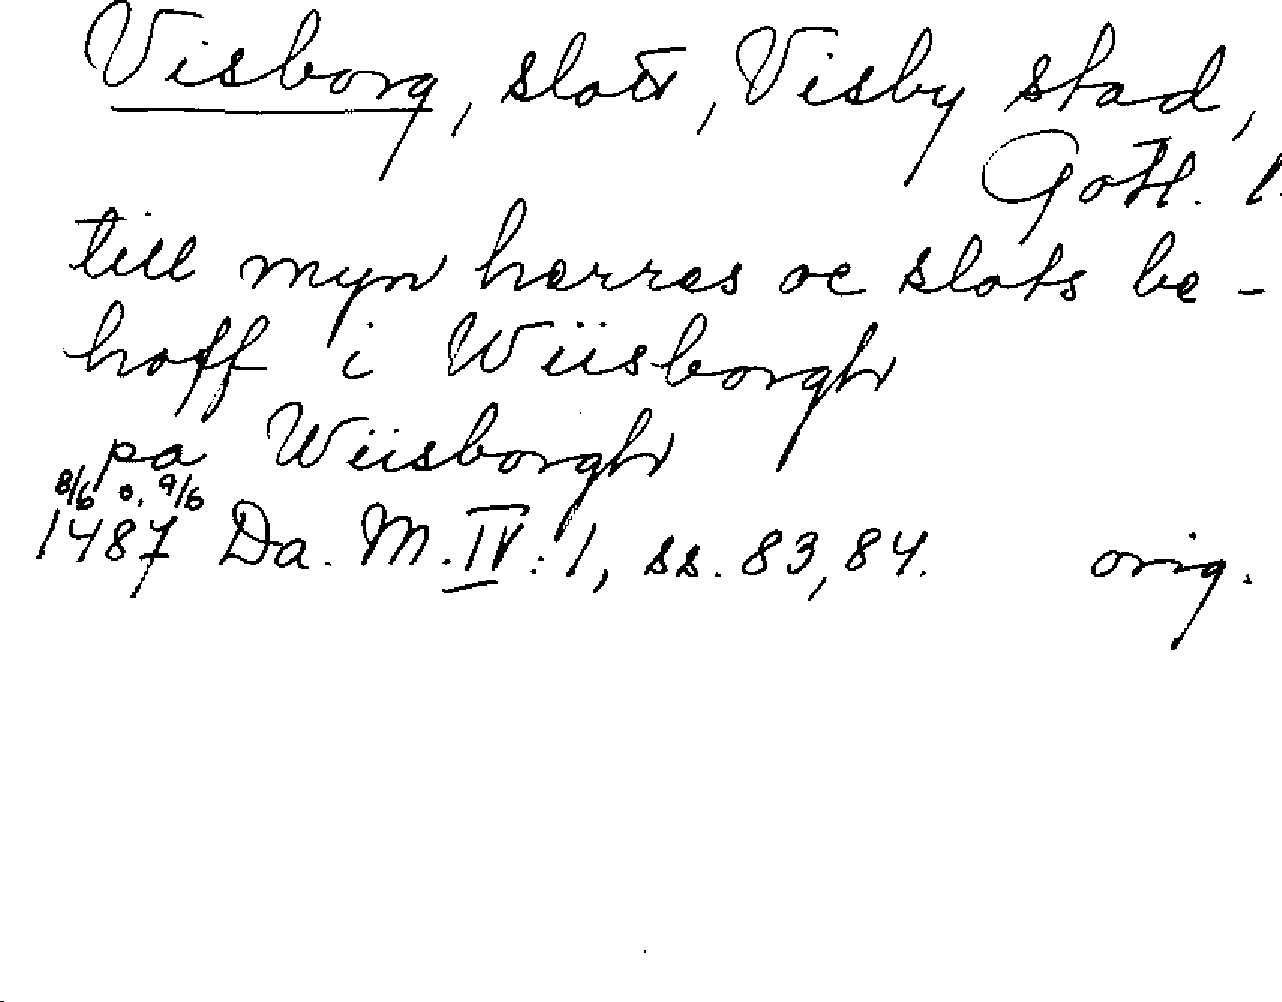 Visborg, slott, Visby stad,
Gotl. l.
till myn herres oc slots be-
hoff i Wiisborgh
pa Wiisborgh
8/6 o. 9/6
1487 Da. M. IV: 1, ss. 83, 84. orig.